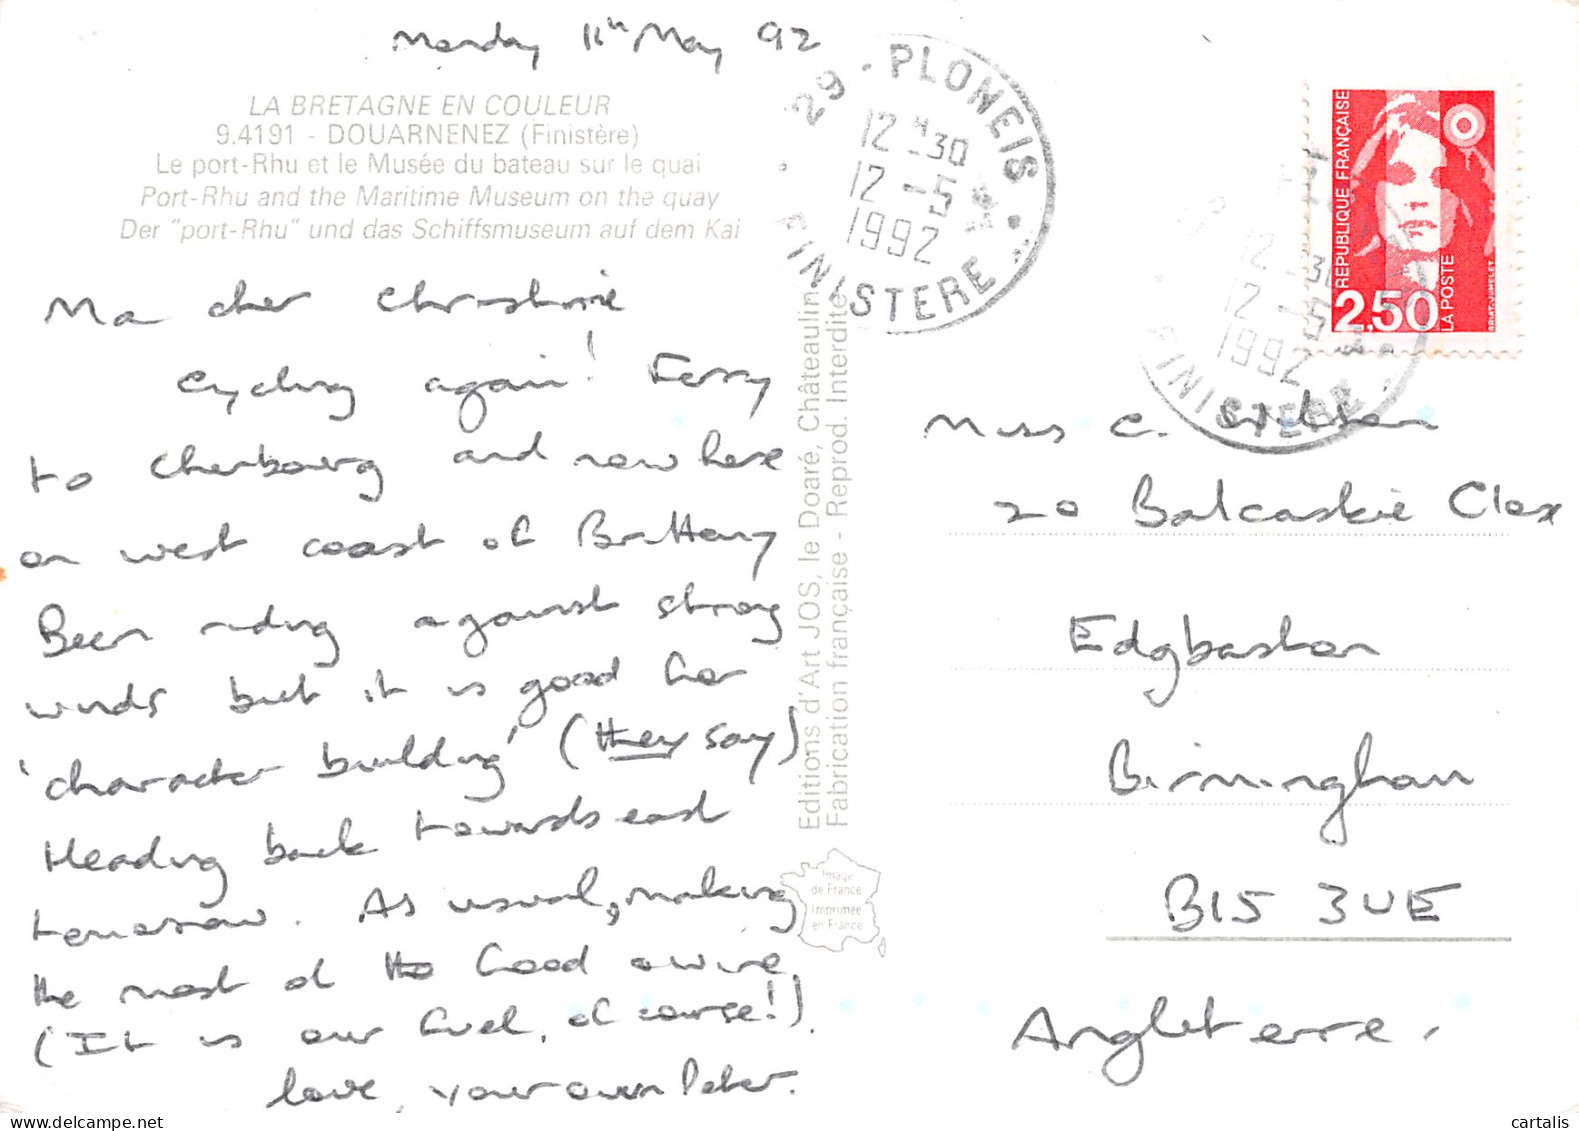 Monday 11th May 92
LA BRETAGNE EN COULEUR
9.4191 - DOUARNENEZ (Finistère)
Le port-Rhu et le Musée du bateau sur le quai
Port-Rhu and the Maritime Museum on the quay
Der "port-Rhu" und das Schiffsmuseum auf dem Kai
Ma cher Christine
Cycling again! Ferry
to Cherbourg and now here
on west coast of Brittany
Been riding against strong
winds but it is good for
'character building' (they say)
Heading back towards east
tomorrow. As usual, making
the most of the food & wine
(It is our fuel, of course!).
love, your own Peter.
29 - PLONEIS
12 H 30
12 - 5
1992
FINISTERE
Editions d'Art JOS, le Doaré, Châteaulin
Fabrication française - Reprod. Interdite
Image
de France
Imprimée
en France
REPUBLIQUE FRANÇAISE
2,50
LA POSTE
BRIAT JUMELET
12 30
12 - 5
1992
FINISTERE
Miss C.
20 Balcaskie Close
Edgbaston
Birmingham
B15 3UE
Angleterre.
cartalis